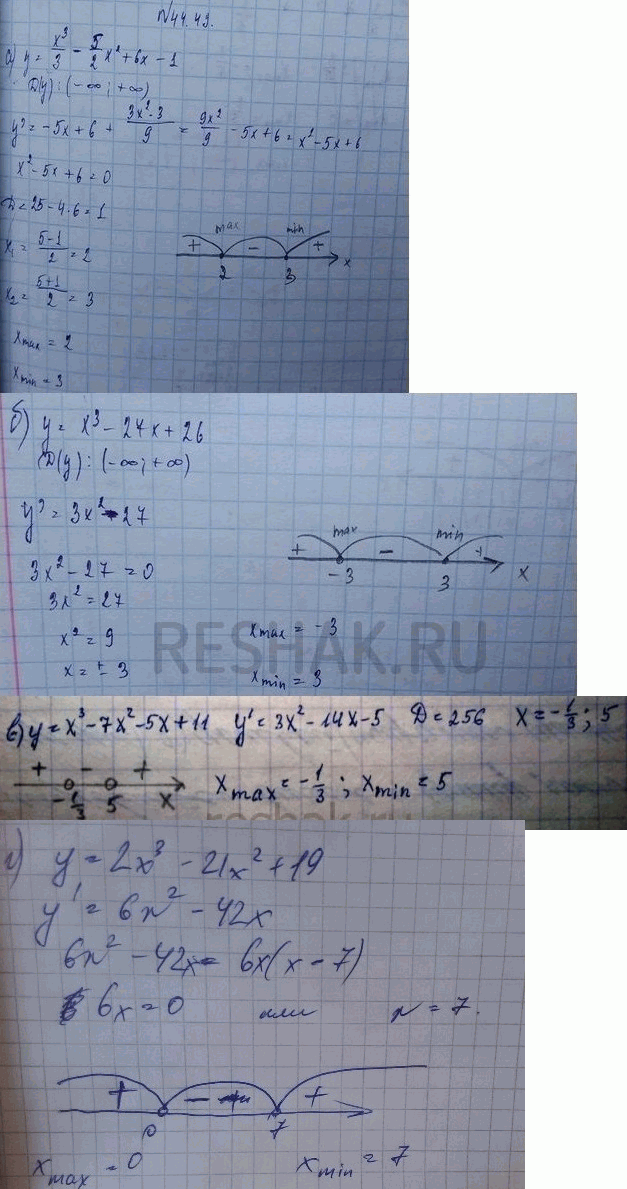 №44.49.
а) y = x³/3 - 5/2 x² + 6x - 1
D(y): (-∞; +∞)
y' = -5x + 6 + 3x²·3/9 = 9x²/9 - 5x + 6 = x² - 5x + 6
x² - 5x + 6 = 0
D = 25 - 4·6 = 1
x₁ = (5-1)/2 = 2
x₂ = (5+1)/2 = 3
+ max - min +
2 3 x
xmax = 2
xmin = 3
б) y = x³ - 27x + 26
D(y): (-∞; +∞)
y' = 3x² - 27
3x² - 27 = 0
3x² = 27
x² = 9
x = ± 3
+ max - min +
-3 3 x
xmax = -3
xmin = 3
RESHAK.RU
в) y = x³ - 7x² - 5x + 11 y' = 3x² - 14x - 5 D = 256 x = -1/3; 5
+ - +
-1/3 5 x
xmax = -1/3; xmin = 5
reshak.ru
г) y = 2x³ - 21x² + 19
y' = 6x² - 42x
6x² - 42x = 6x(x - 7)
6x = 0 или x = 7.
+ - +
0 7
xmax = 0 xmin = 7